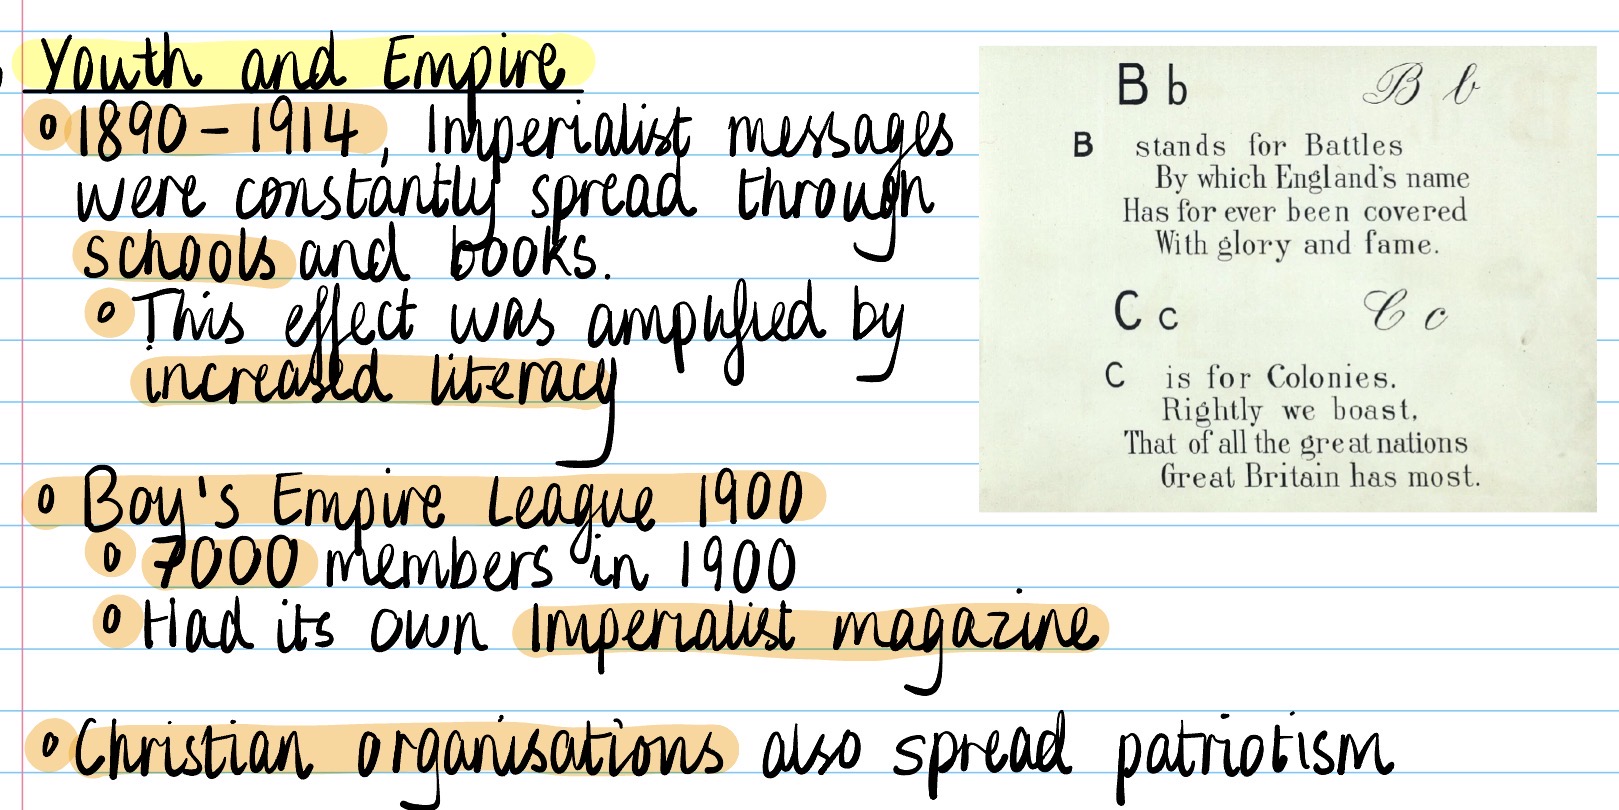 Youth and Empire
1890-1914, Imperialist messages
were constantly spread through
schools and books.
This effect was amplified by
increased literacy
Boy's Empire League 1900
7000 members in 1900
Had its own Imperialist magazine
Christian organisations also spread patriotism
B b B b
B stands for Battles
By which England's name
Has for ever been covered
With glory and fame.
C c C c
C is for Colonies.
Rightly we boast,
That of all the great nations
Great Britain has most.